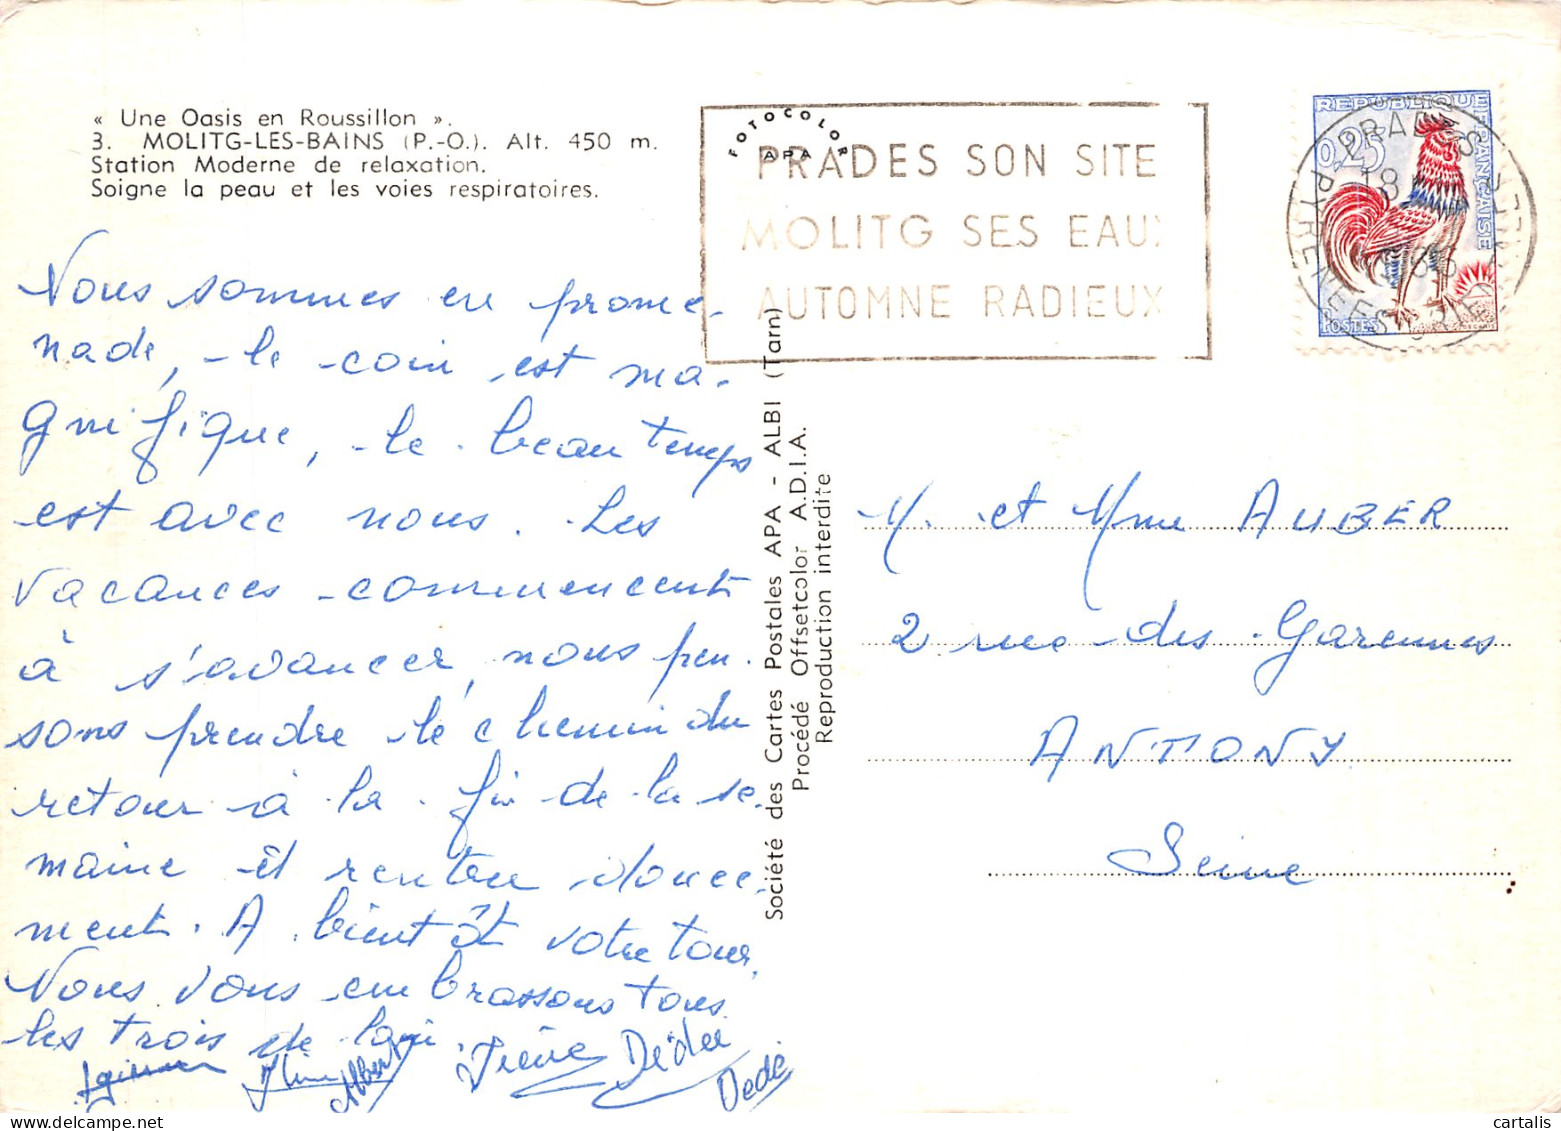 « Une Oasis en Roussillon ».
3. MOLITG-LES-BAINS (P.-O.). Alt. 450 m.
Station Moderne de relaxation.
Soigne la peau et les voies respiratoires.
Nous sommes en prome-
nade, le coin est ma-
gnifique, le beau temps
est avec nous. Les
vacances commencent
à s'avancer, nous pen-
sons prendre le chemin du
retour à la fin de la se-
maine et rentrer douce-
ment. A bientôt votre tour.
Nous vous embrassons tous
les trois de loin.
Albert
Irène Dédée
Dedé
FOTOCOLOR
APA
PRADES SON SITE
MOLITG SES EAUX
AUTOMNE RADIEUX
REPUBLIQUE FRANÇAISE
0,25
POSTES
PRADES
18
PYRENEES
Société des Cartes Postales APA - ALBI (Tarn)
Procédé Offsetcolor A.D.I.A.
Reproduction interdite
M. et Mme AUBER
2 rue des Garennes
ANTONY
Seine
cartalis